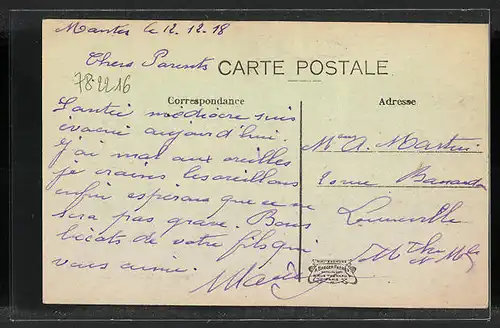 Mantes le 12.12.18
Chers Parents
782216
CARTE POSTALE
Correspondance
Adresse
Santé médiocre suis
évacué aujourd'hui.
J'ai mal aux oreilles
je crains les oreillons
enfin espérons que ce ne
sera pas grave. Bons
bécots de votre fils qui
vous aime.
A. Martin
rue
Lunéville
Mthe